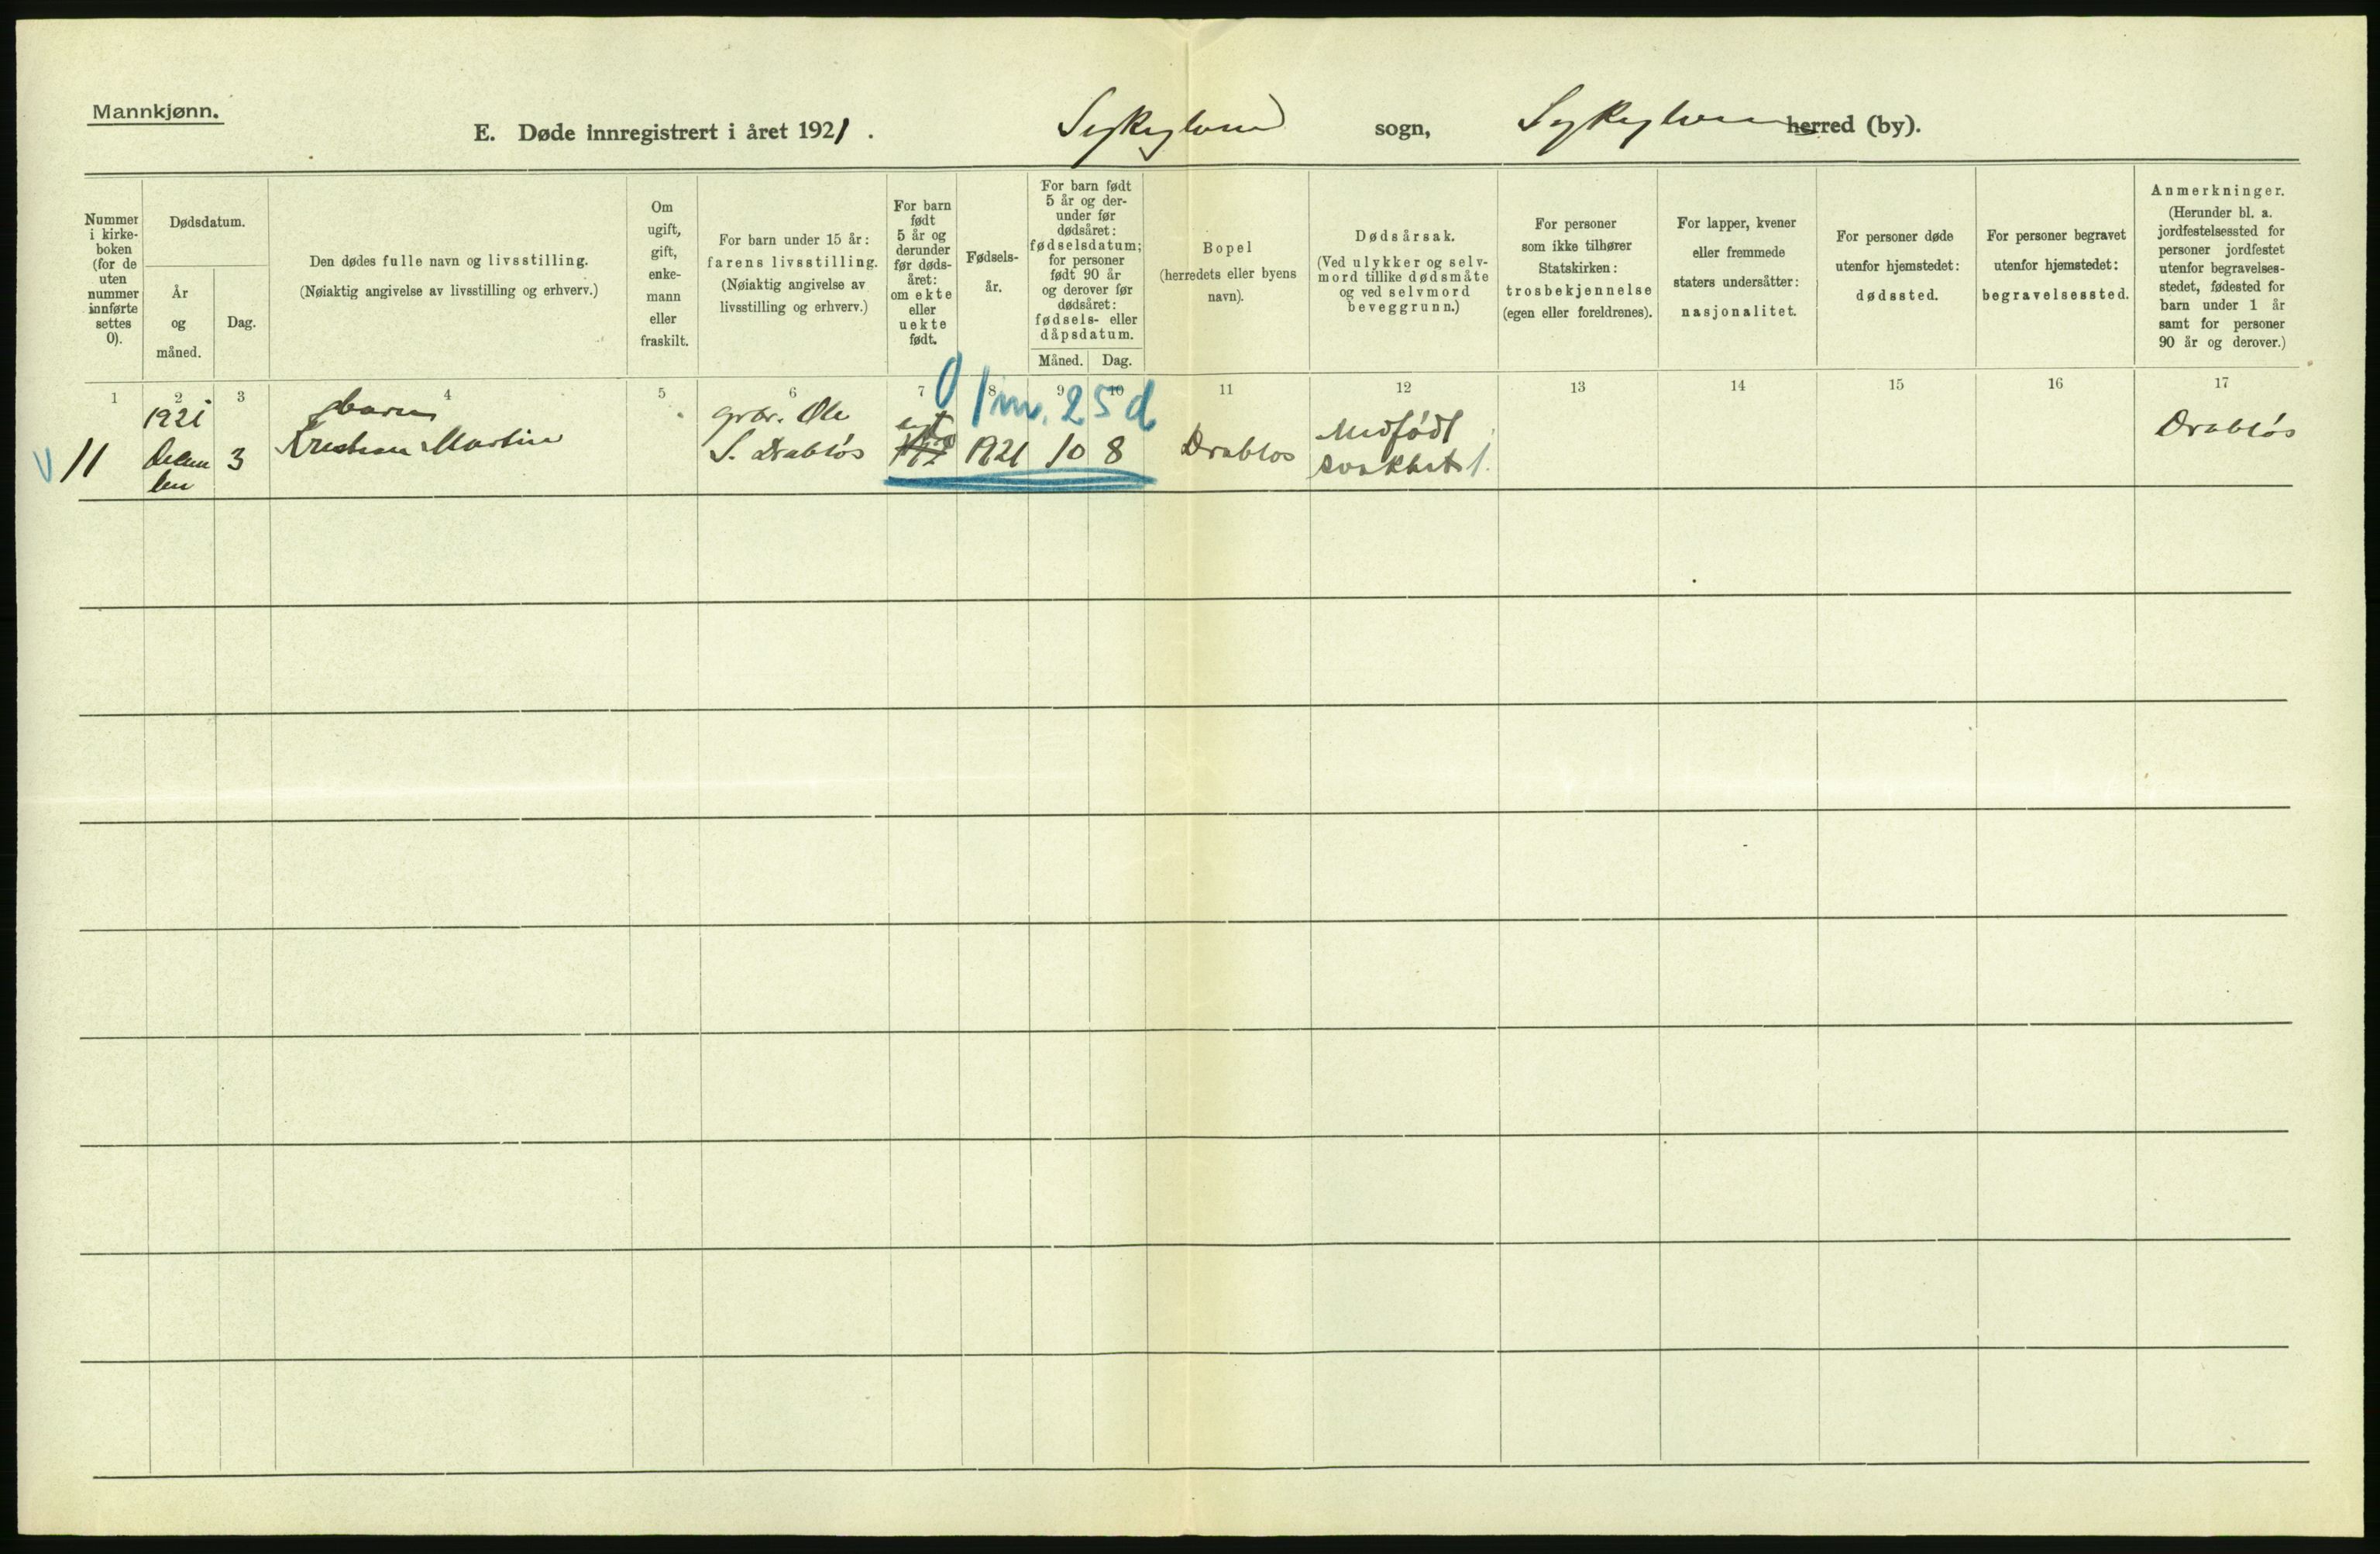 Mannkjønn.
E. Døde innregistrert i året 1921.
Sykylven sogn, Sykylven herred (by).
Nummer i kirke-
boken
(for de
uten
nummer
innførte
settes
0).
Dødsdatum.
År
og
måned.
Dag.
Den dødes fulle navn og livsstilling.
(Nøiaktig angivelse av livsstilling og erhverv.)
Om
ugift,
gift,
enke-
mann
eller
fraskilt.
For barn under 15 år:
farens livsstilling.
(Nøiaktig angivelse av
livsstilling og erhverv.)
For barn
født
5 år og
derunder
før døds-
året:
om ekte
eller
uekte
født.
Fødsels-
år.
For barn født
5 år og der-
under før
dødsåret:
fødselsdatum;
for personer
født 90 år
og derover før
dødsåret:
fødsels- eller
dåpsdatum.
Måned. Dag.
Bopel
(herredets eller byens
navn).
Dødsårsak.
(Ved ulykker og selv-
mord tillike dødsmåte
og ved selvmord
beveggrunn.)
For personer
som ikke tilhører
Statskirken:
trosbekjennelse
(egen eller foreldrenes).
For lapper, kvener
eller fremmede
staters undersåtter:
nasjonalitet.
For personer døde
utenfor hjemstedet:
dødssted.
For personer begravet
utenfor hjemstedet:
begravelsessted.
Anmerkninger.
(Herunder bl. a.
jordfestelsessted for
personer jordfestet
utenfor begravelses-
stedet, fødested for
barn under 1 år
samt for personer
90 år og derover.)
1 2 3 4 5 6 7 8 9 10 11 12 13 14 15 16 17
0 1 m. 25 d
V 11
1921
3
barn
Kristian Martin
grbr. Ole
S. Drabløs
1921 10 8
Drabløs
Medfødt
svakhet 1.
Drabløs